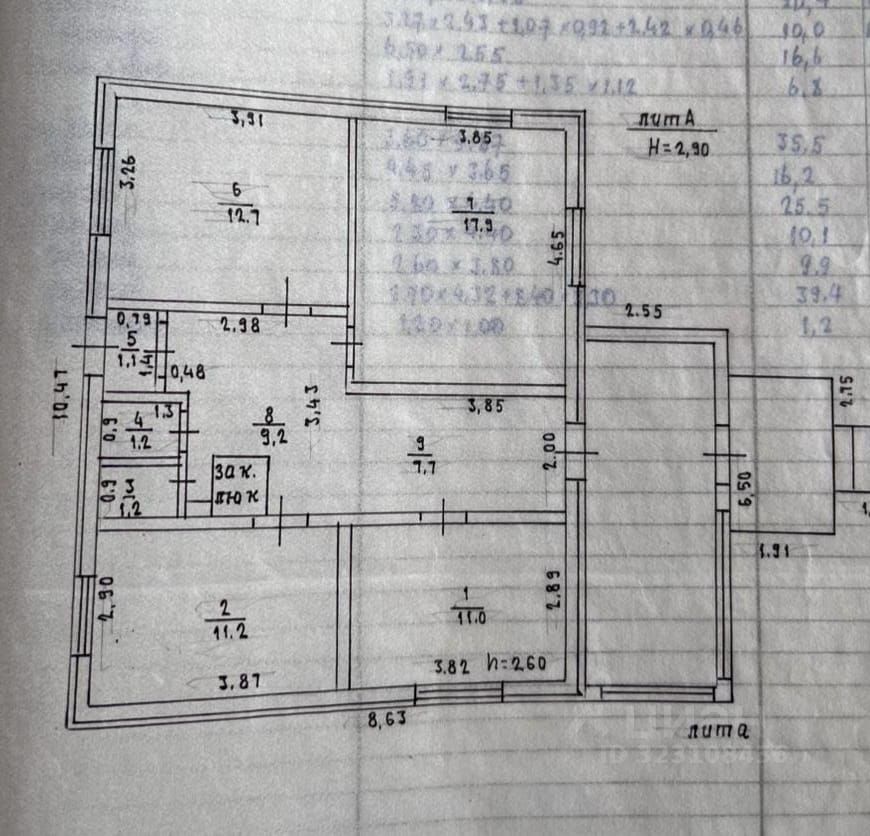 3.27 × 2.43 + 1,07 × 0,92 + 2.42 × 0,46 10,0
6,50 × 2.55 16,6
1,91 × 2,75 + 1,35 × 1.12 6.8
35,5
4.45 × 3.65 16,2
25.5
2.30 × 4.40 10,1
2.60 × 3.80 9.9
39.4
1.20 × 1.00 1,2
лит А
H=2,90
3,91
3.85
3.26
6
12.7
7
17.9
4.65
2.55
0,79
2,98
5
1,1
1,4
0,48
10,47
3,43
3,85
2.75
1.3
0,9
4
1.2
8
9,2
9
7.7
2.00
0.9
3
1,2
зак.
люк
6,50
1.91
2,90
2
11.2
1
11.0
2.89
3.82 h=260
3,87
8,63
лит а
ЦИАН
ID 323108436